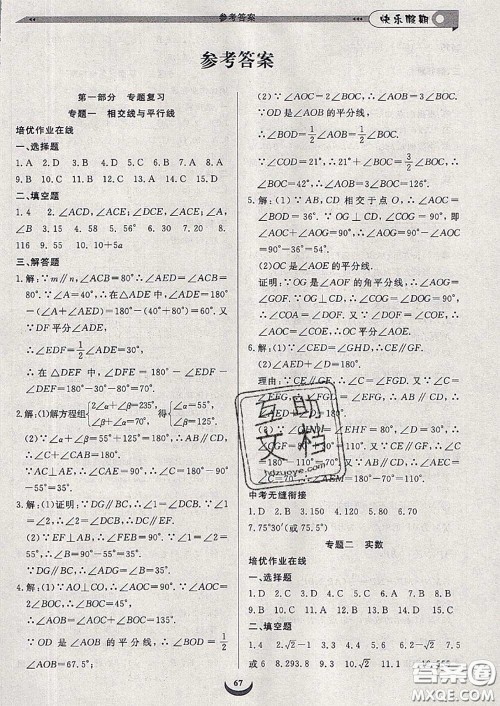 参考答案
快乐假期
参考答案
第一部分 专题复习
专题一 相交线与平行线
培优作业在线
一、选择题
1. A 2. D 3. B 4. C 5. D 6. C 7. B 8. A
9. B 10. D 11. C 12. D 13. C 14. C 15. D
二、填空题
1. 4 2. ∠ACD,∠ACE;∠DCE,∠ACE;∠A,
∠B 3. 15 4. 58 5. 56° 6. 1 7. 30° 8.
116 9. 55 10. 10+5a
三、解答题
1. 解:∵m∥n,∠ACB=80°.∴∠AED=∠ACB=
80°.∵∠A=40°,∴在△ADE中,∠ADE=180°-
(∠A+∠AED)=180°-(40°+80°)=60°.又
∵DF平分∠ADE,
∴∠EDF=1/2∠ADE=30°.
在△DEF中,∠DFE=180°-∠EDF-
∠DEF=180°-30°-80°=70°.
2. 解:(1)解方程组{2∠α+∠β=235°, ∠β-∠α=70°, 得{∠α=55°, ∠β=125°.
(2)∵∠α+∠β=55°+125°=180°,∴AB∥CD,
∴∠C+∠CAB=180°.
∵AC⊥AE,∴∠CAE=90°,∴∠C=180°-90°-
55°=35°.
3. 解:(1)证明:∵DG∥BC,∴∠1=∠DCB.∵∠1=
∠2,∴∠2=∠DCB,∴CD∥EF.
(2)∵EF⊥AB,∴∠FEB=90°,∴∠B=90°-∠2=
90°-55°=35°.∵DG∥BC,∴∠ADG=∠B=35°.
4. 解:(1)∵AO⊥CO,∴∠AOC=90°.∵∠BOC=
2∠AOC,∴∠BOC=45°,
∴∠AOB=∠AOC+∠BOC=135°.
∵OD是∠AOB的平分线,∴∠BOD=1/2
∠AOB=67.5°;
(2)∵∠AOC=2∠BOC,∴∠AOB=3∠BOC.
∵OD是∠AOB的平分线,
∴∠BOD=1/2∠AOB=3/2∠BOC.
∵∠COD=21°,∴21°+∠BOC=3/2∠BOC,
∴∠BOC=42°,∴∠AOB=3∠BOC=126°.
5. 解:(1)∵AB,CD相交于点O,∴∠AOC=
∠BOD=36°.∵OG⊥CD,∴∠COG=90°,即
∠AOC+∠AOG=90°,∴∠AOG=90°-∠AOC=
90°-36°=54°.
(2)OC是∠AOE的平分线.
证明:∵OG是∠AOF的角平分线,∴∠AOG=
∠GOF.∵OG⊥CD,∴∠COG=∠DOG=90°,
∴∠COA=∠DOF.又∵∠DOF=∠COE,
∴∠AOC=∠COE,∴OC平分∠AOE.
6. 解:(1)∵∠CED=∠GHD,∴CE∥GF.
(2)∠AED+∠D=180°.
理由:∵CE∥GF,∴∠C=∠FGD.又∵∠C=
∠EFG,∴∠FGD=∠EFG,∴AB∥CD,
∴∠AED+∠D=180°.
∠CGF=
180°-110°=70°.∵CE∥GF,∴∠C=180°-
∴∠AEM=180°-70°=110°.
中考无缝衔接
1. B 2. A 3. 110 4. 120 5. 80 6. 70
7. 75°30′(或75.5°)
专题二 实数
培优作业在线
一、选择题
1. B 2. D 3. D 4. D 5. B 6. C 7. D 8. B
9. B 10. D 11. D 12. D 13. B 14. C 15. D
二、填空题
1. 4 2. √2-1 3. 4 4. 2 5. 6 6. 2-√2 7. 5
或6 8. 293.8 9. 4 10. √2-1 11. 1
67
互助文档
hdzuoye.com
答案圈
MXQE.COM